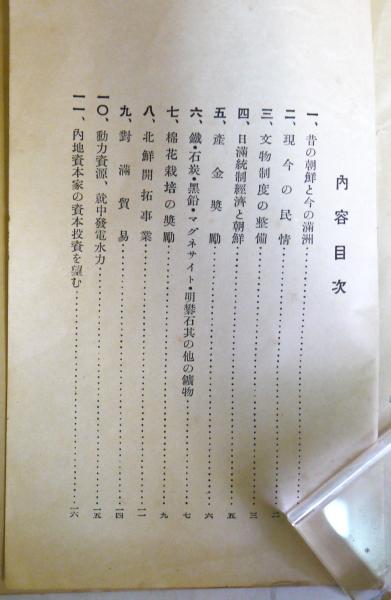 內容目次
一、昔の朝鮮と今の滿洲
二、現今の民情……二
三、文物制度の整備……三
四、日滿統制經濟と朝鮮……五
五、產金奬勵……六
六、鐵・石炭・黑鉛・マグネサイト・明礬石其の他の鑛物……七
七、棉花栽培の奬勵……九
八、北鮮開拓事業……一一
九、對滿貿易……一四
一〇、動力資源、就中發電水力……一五
一一、內地資本家の資本投資を望む……一六